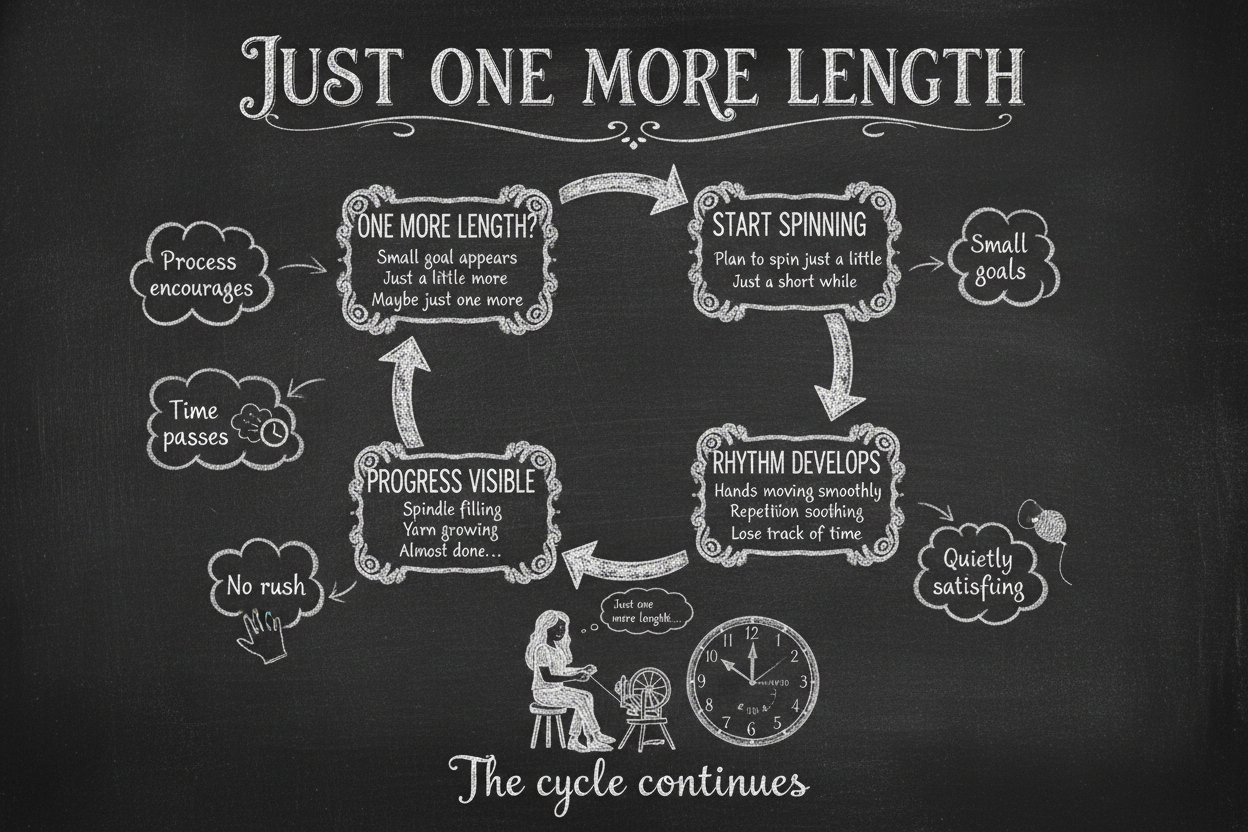 JUST ONE MORE LENGTH
ONE MORE LENGTH?
Small goal appears
Just a little more
Maybe just one more
START SPINNING
Plan to spin just a little
Just a short while
Process
encourages
Small
goals
Time
passes
PROGRESS VISIBLE
Spindle filling
Yarn growing
Almost done...
RHYTHM DEVELOPS
Hands moving smoothly
Repetition soothing
Lose track of time
No rush
Quietly
satisfiing
Just one
more
12
1
2
3
4
5
6
7
8
9
10
11
The cycle continues